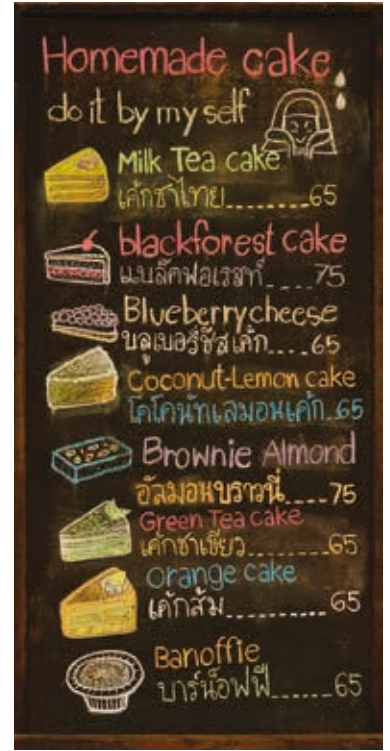 Homemade cake
do it by my self
Milk Tea cake
เค้กชาไทย........65
blackforest cake
แบล๊คฟอเรสท์....75
Blueberry cheese
บลูเบอร์รี่ชีสเค้ก....65
Coconut-Lemon cake
โคโคนัทเลมอนเค้ก..65
Brownie Almond
อัลมอนบราวนี่....75
Green Tea cake
เค้กชาเขียว........65
Orange cake
เค้กส้ม..........65
Banoffie
บาร์น็อฟฟี่......65